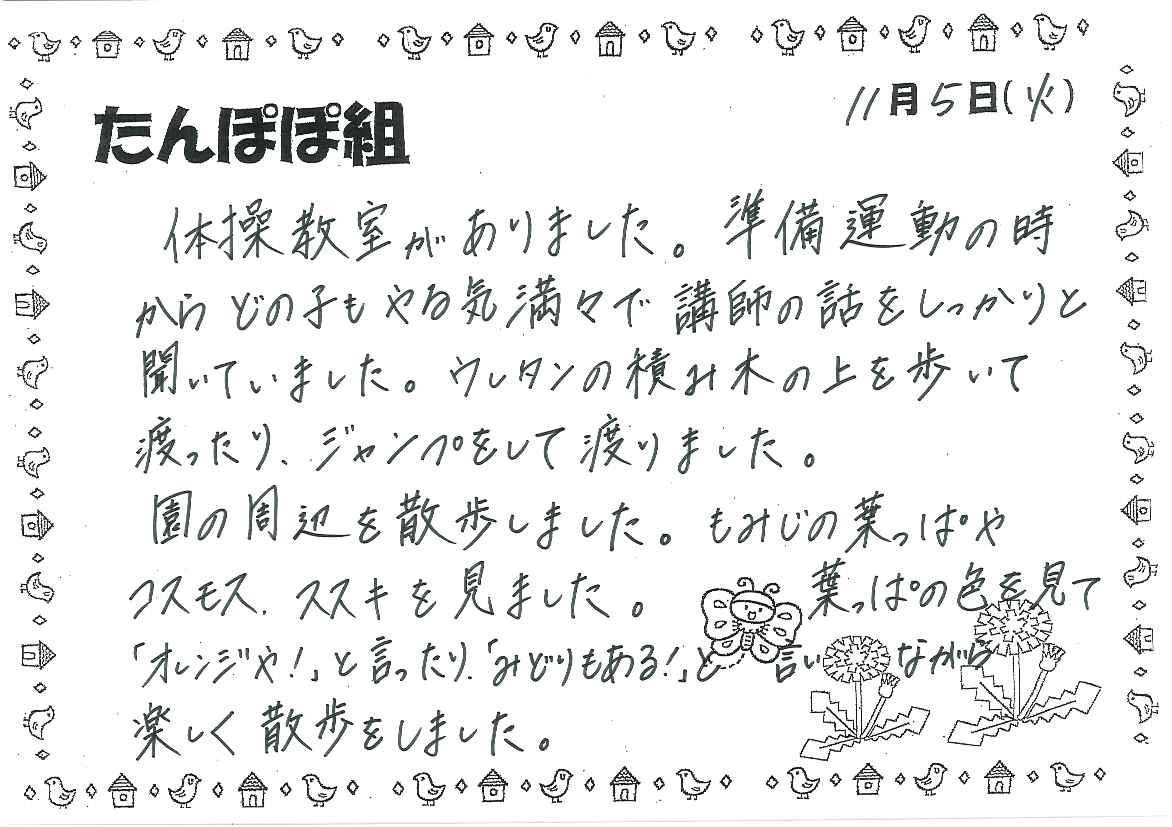 たんぽぽ組
11月5日(火)
体操教室がありました。準備運動の時
からどの子もやる気満々で講師の話をしっかりと
聞いていました。ウレタンの積み木の上を歩いて
渡ったり、ジャンプをして渡りました。
園の周辺を散歩しました。もみじの葉っぱや
コスモス、ススキを見ました。葉っぱの色を見て
「オレンジや!」と言ったり、「みどりもある!」と言いながら
楽しく散歩をしました。